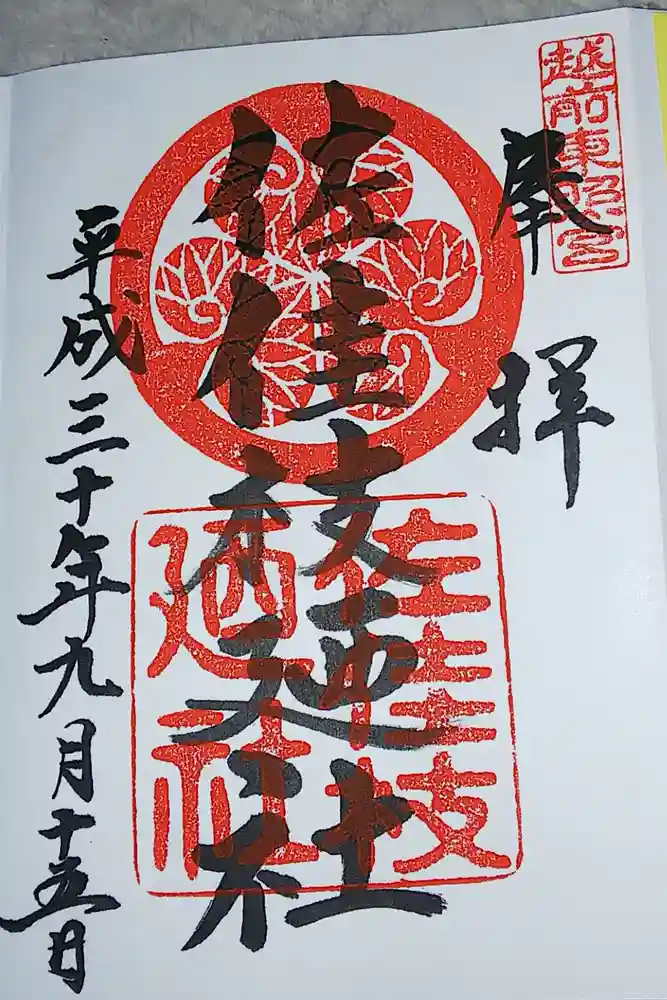 越前東照宮
奉拝
佐佳枝廼社
佐佳枝
廼社
平成三十年九月十五日